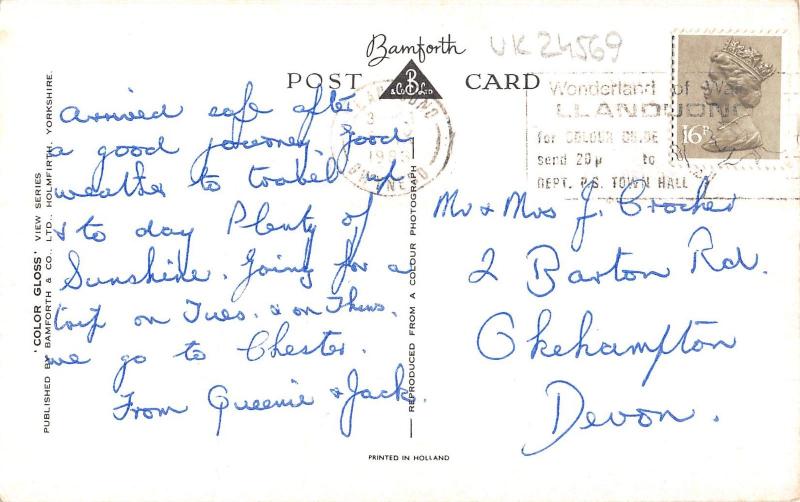 Bamforth
UK 24569
POST CARD
B
& Co Ltd
Wonderland of Wa
LLANDUDNO
for COLOUR GUIDE
send 20p to
DEPT. P.S. TOWN HALL
16P
LLANDUDNO
GWYNEDD
Arrived safe after
a good journey, good
weather to travel up
& to day Plenty of
Sunshine. Going for a
trip on Tues. & on Thurs.
we go to Chester.
From Queenie & Jack.
Mr & Mrs J. Crocker
2 Barton Rd.
Okehampton
Devon.
'COLOR GLOSS' VIEW SERIES
PUBLISHED BY BAMFORTH & CO., LTD., HOLMFIRTH, YORKSHIRE.
REPRODUCED FROM A COLOUR PHOTOGRAPH
PRINTED IN HOLLAND